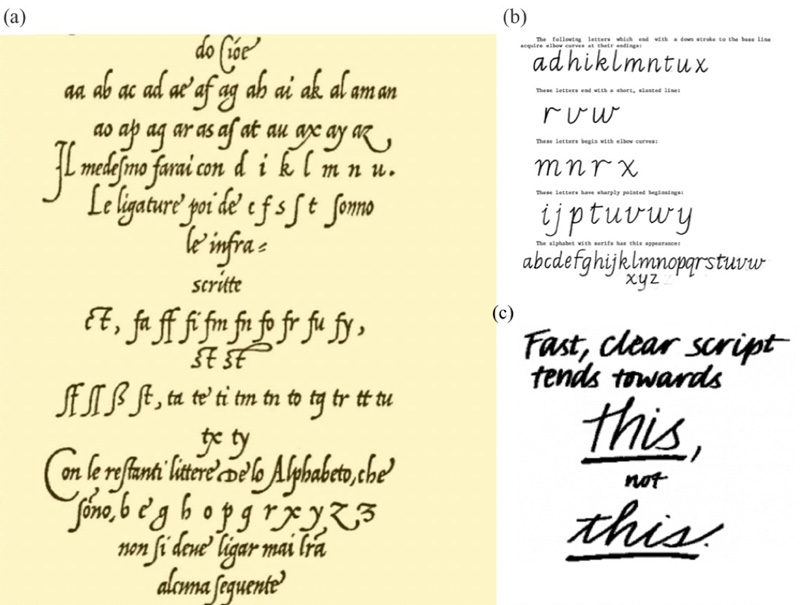 (a)
do Cioe
aa ab ac ad ae af ag ah ai ak al am an
ao ap aq ar as aſ at au ax ay az
Il medeſmo farai con d i k l m n u.
Le ligature poi de c f s ſ t ſonno
le infra⸗
scritte
ct, fa ff fi fm fn fo fr fu fy,
st ſt
ſf ſſ ß ſt, ta te ti tm tn to tq tr tt tu
tx ty
Con le reſtanti littere De lo Alphabeto, che
ſono, b e g h o p q r x y z ʒ
non ſi deue ligar mai lr̃a
alcuna ſequente
(b)
The following letters which end with a down stroke to the base line
acquire elbow curves at their endings:
adhiklmntux
These letters end with a short, slanted line:
rvw
These letters begin with elbow curves:
mnrx
These letters have sharply pointed beginnings:
ijptuvwy
The alphabet with serifs has this appearance:
abcdefghijklmnopqrstuvw
xyz
(c)
Fast, clear script
tends towards
this,
not
this.